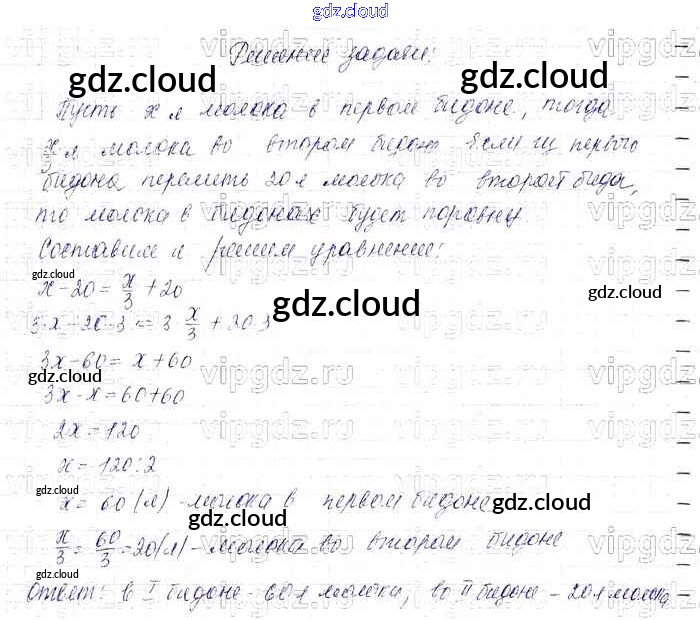 gdz.cloud
Решение задачи:
gdz.cloud gdz.cloud
Пусть x л молока в первом бидоне, тогда
x/3 л молока во втором бидоне. Если из первого
бидона перелить 20 л молока во второй бидо,
то молока в бидонах будет поровну.
Составим и решим уравнение:
gdz.cloud
x-20=x/3+20
gdz.cloud
gdz.cloud
3·x-20·3=3·x/3+20·3
3x-60=x+60
gdz.cloud
3x-x=60+60
2x=120
x=120:2
gdz.cloud
x=60(л)-молока в первом бидоне
gdz.cloud
gdz.cloud
x/3=60/3=20(л)-молока во втором бидоне
gdz.cloud
Ответ: в I бидоне-60л молока, во II бидоне-20л молока